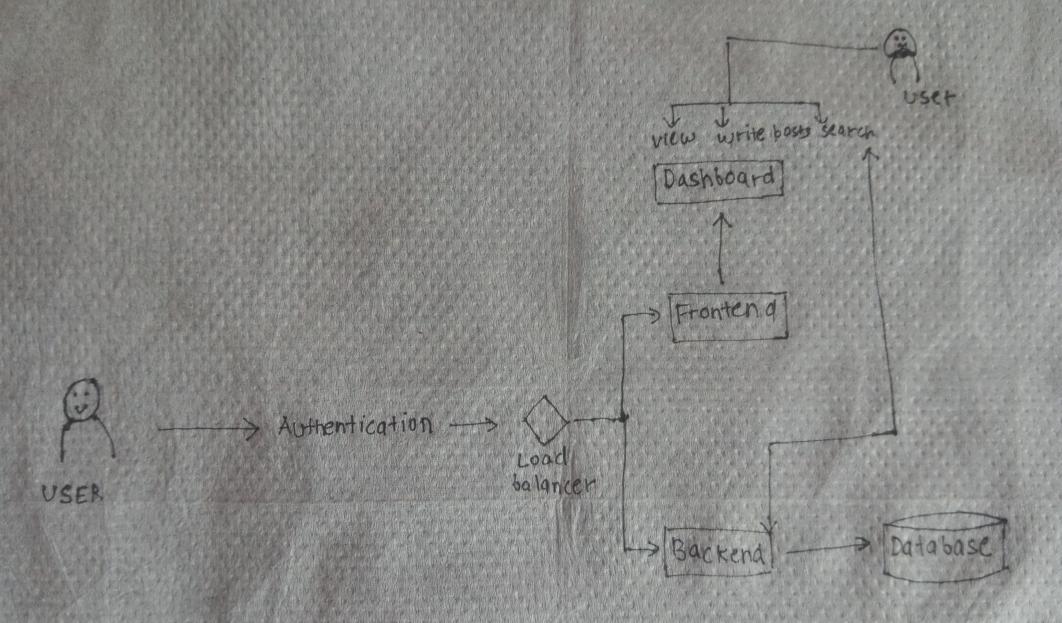 user
view write posts search
Dashboard
Frontend
Authentication
Load
balancer
USER
Backend
Database